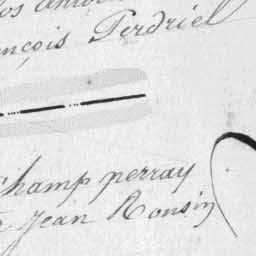 François Perdriel
Champ perray
Jean Ronsin